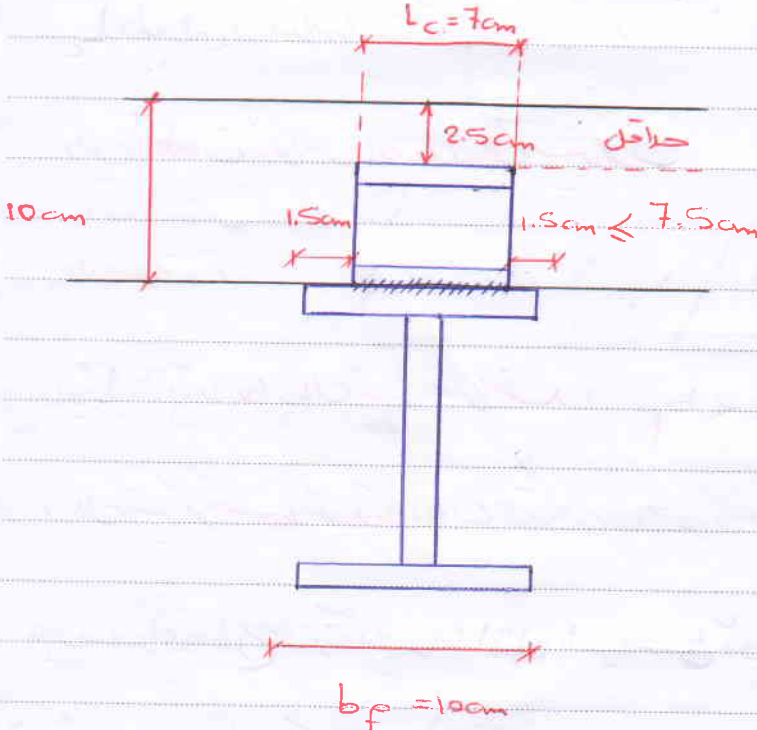 Lc = 7cm
2.5cm
حداقل
10cm
1.5cm
1.5cm ≤ 7.5cm
bf = 10cm